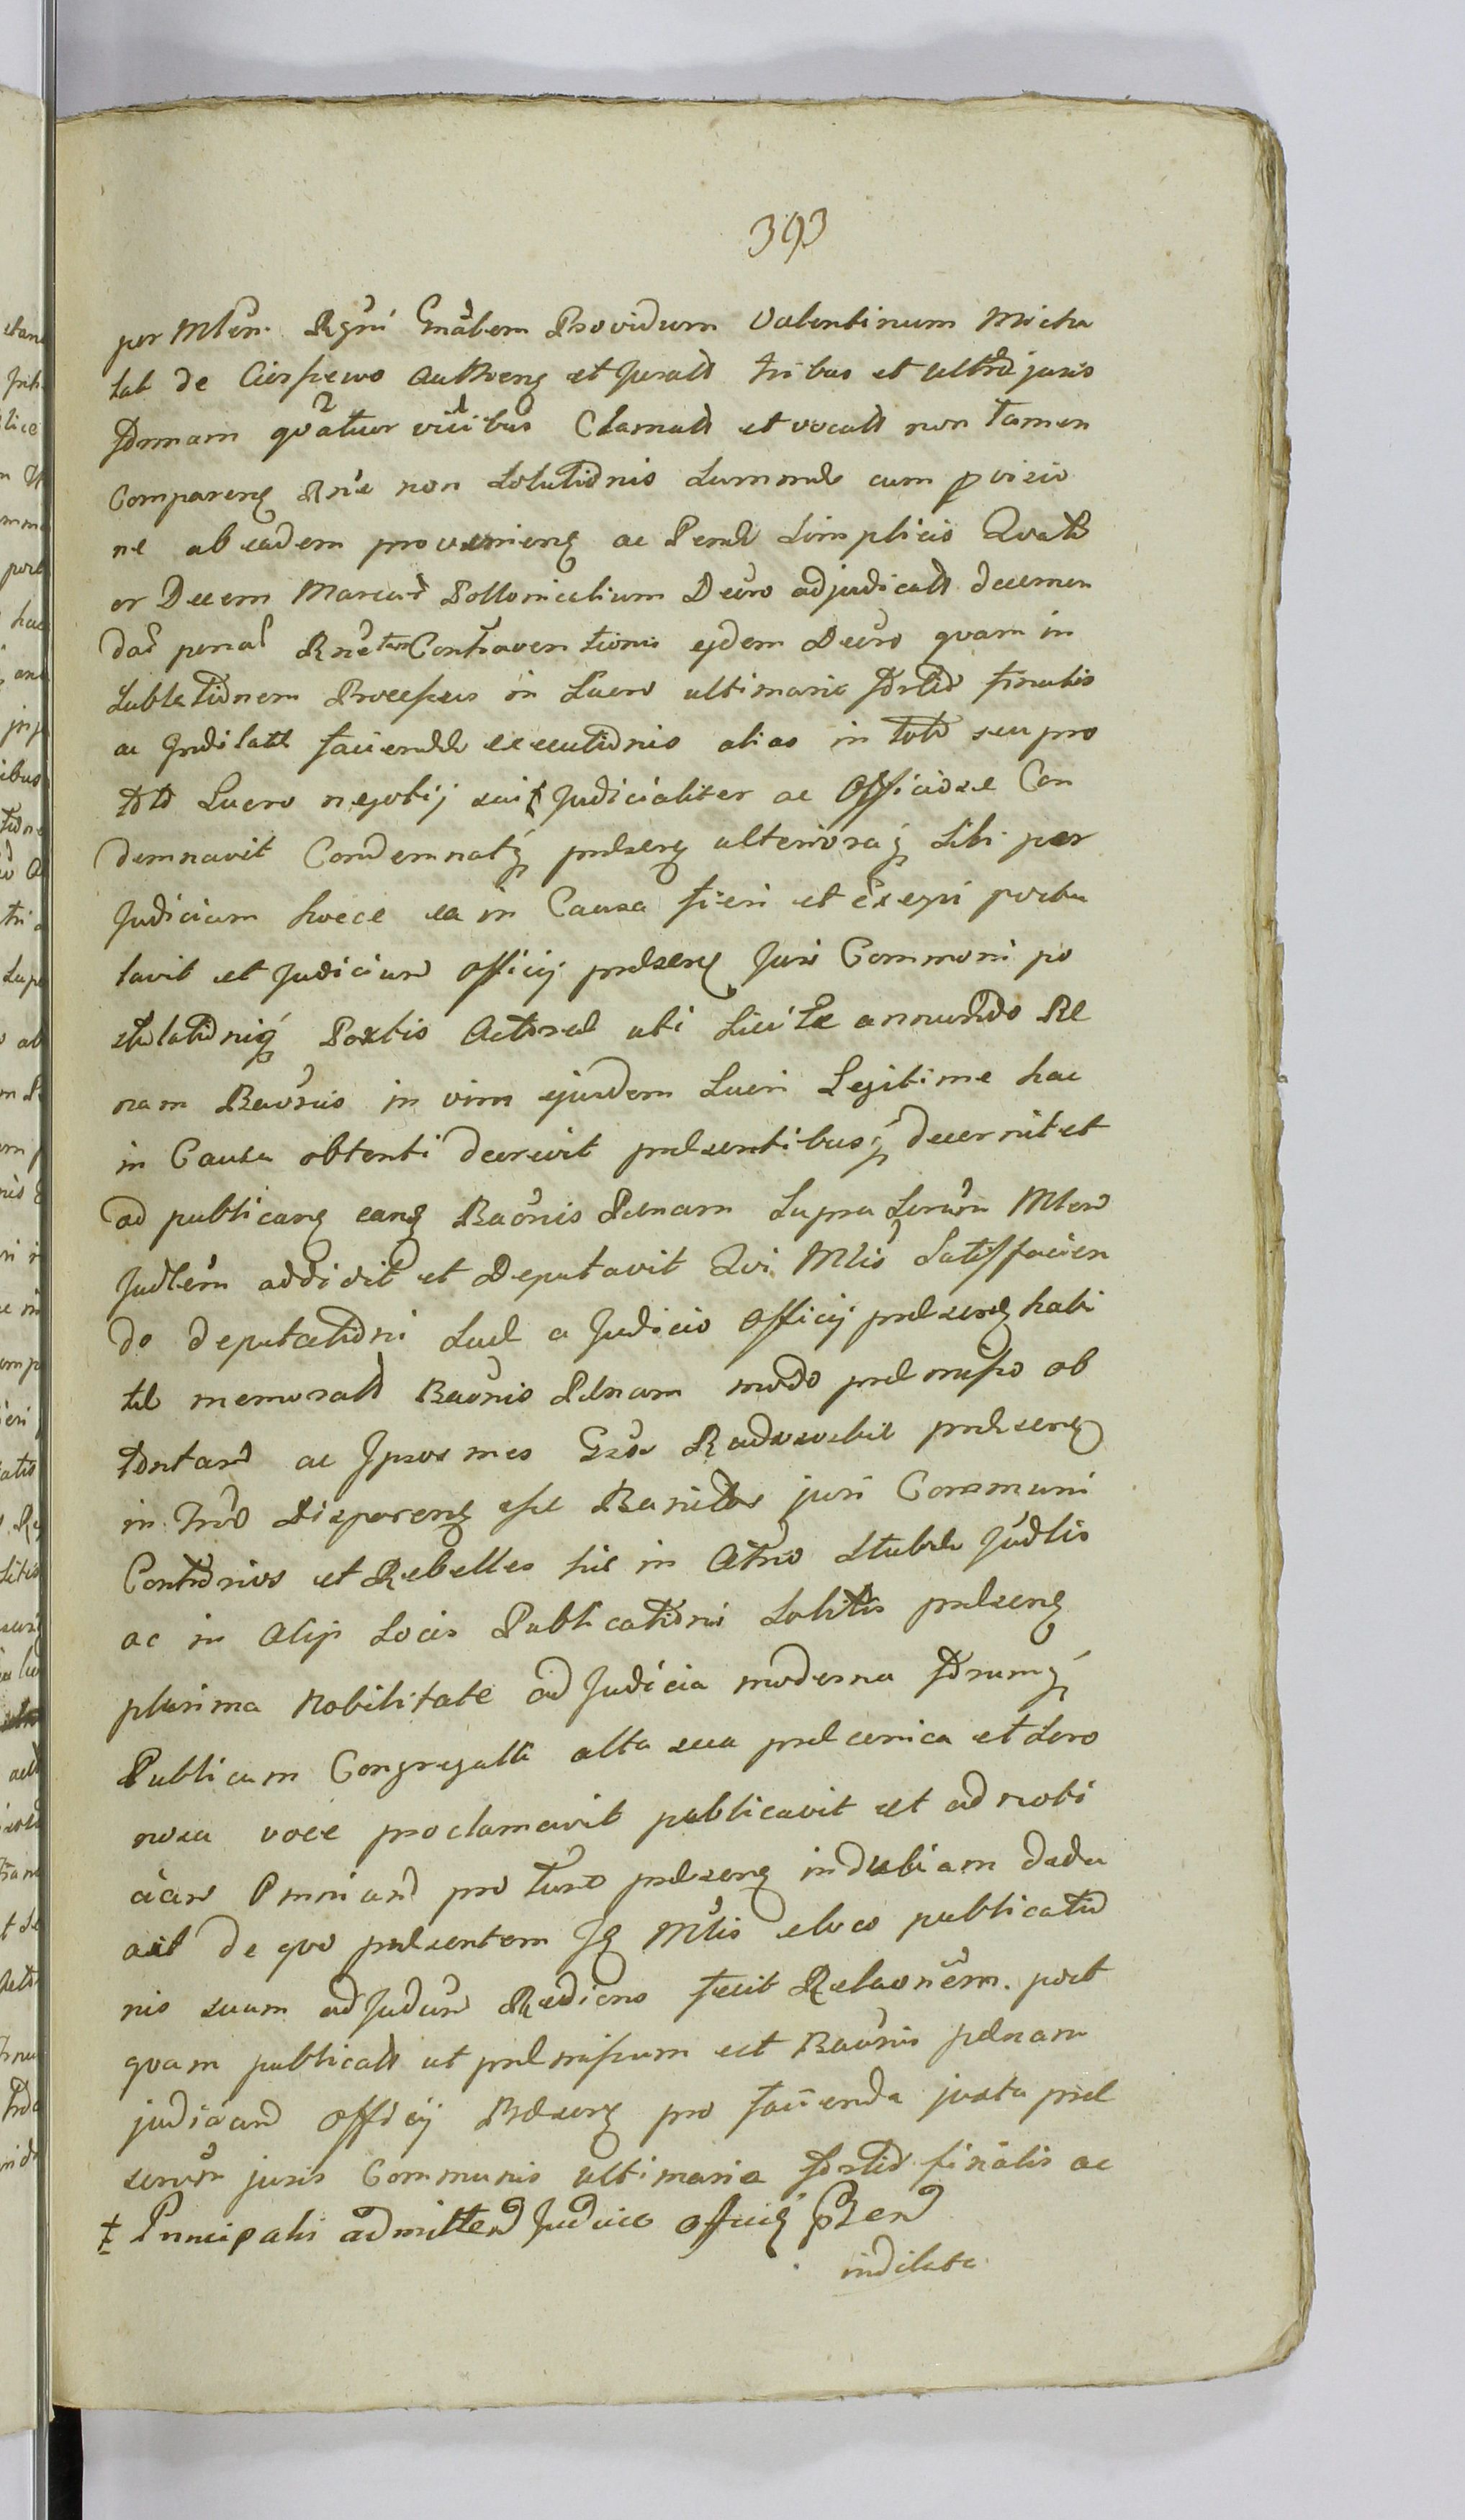 393
per Mlem. Rgni Gnalem Providum Valentinum Micha
lak de Cierpiewo Authreng et Juratt tribus et ultra juris
formam quatuor vicibus Clamatt et vocatt non tamen
Compareng Rne non Solutionis Summæ cum pvisio
ne ab eadem provenieng ac Penæ Simplicis Quatu
or Decem Marcar Pollonicalium Decro adjudicatt decernen
das penas Rne tum Contraventionis ejdem Decro quam in
Sublationem Processus in Lucro ultimaria fortio finalis
ac Indilatt faciendæ executionis alias in toto seu pro
toto Lucro negotij sui Judicialiter ac Officiose Con
demnavit Condemnatq præseng ulterioraq Sibi per
Judicium hocce ea in Causa fieri et exequi postu
lavit et Judicium Officij præseng Juri Communi po
stulationiq Partis Actoreæ uti Licitæ annuendo Pæ
nam Baonis in vim ejusdem Lucri Legitime hac
in Causa obtenti decrevit præsentibusq decernit et
ad publicang eang Baonis Pænam Suprascrum Mlem
Judlem addidit et Deputavit Qui Mlis Satisfacien
do deputationi Suæ a Judicio Officij præseng habi
tæ memoratt Baonis Pænam modo præmisso ob
tentam ac Ipsosmes Gsos Radoszewskie præseng
in Trno Dispareng esse Banitos juri Communi
Contrarios et Rebelles hic in Atrio Stubæ Judlis
ac in Alijs Locis Publicationi Solitis præseng
plurima Nobilitate ad Judicia moderna forumq
Publicum Congregatta alta sua præconica et Sono
rosa voce proclamavit publicavit et ad noti
ciam Omnium pro Trno præseng indubiam dedu
xit de quo præsentem Iq Mlis eloco publicatio
nis suam ad Judum Rediens fecit Relaonem. post
quam publicatt ut præmissum est Baonis pænam
judicium Officij Præseng pro facienda juxta præ
scrum juris Communis ultimaria fortio finalis ac
‡ Principali admitten Judicio Officij Præsen
indilata